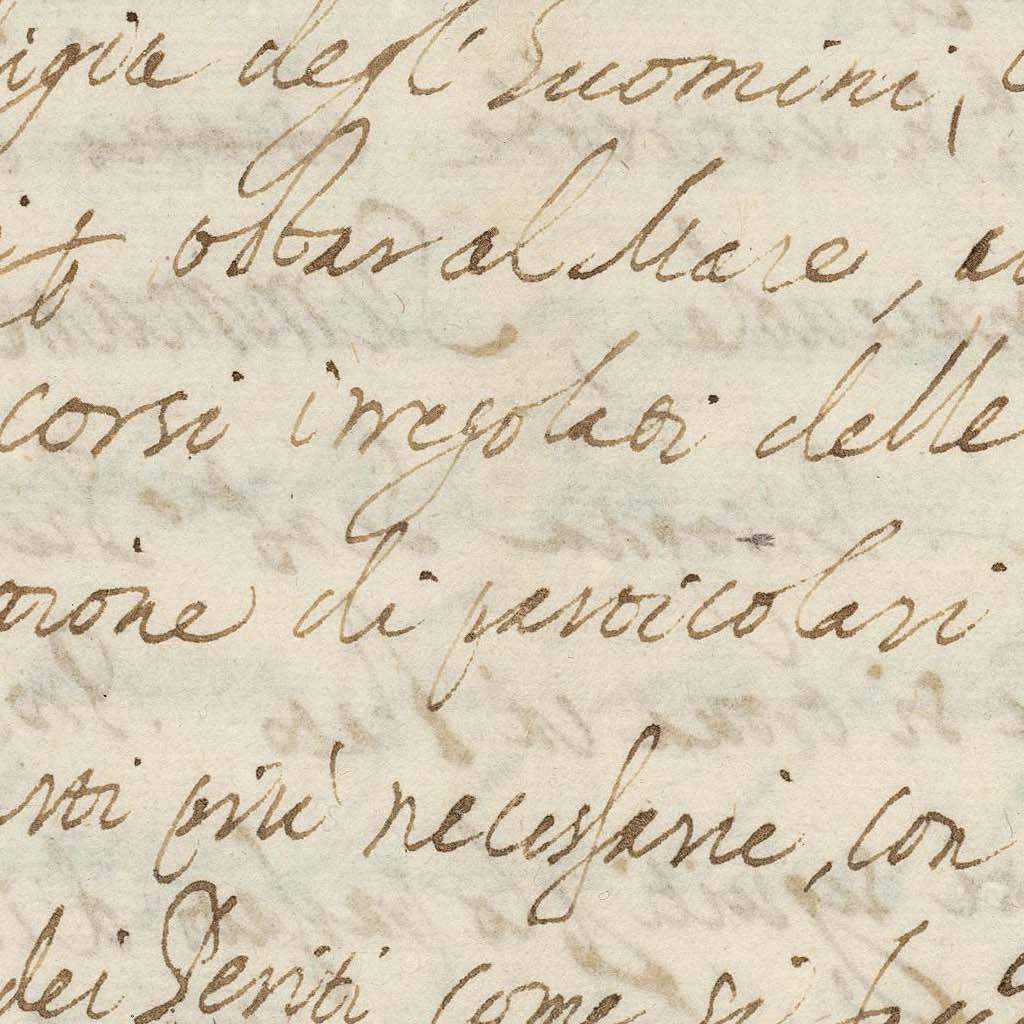 degl'huomini,
ostar al Mare,
corsi irregolati delle
di particolari
più necessarie, con
dei Periti come si